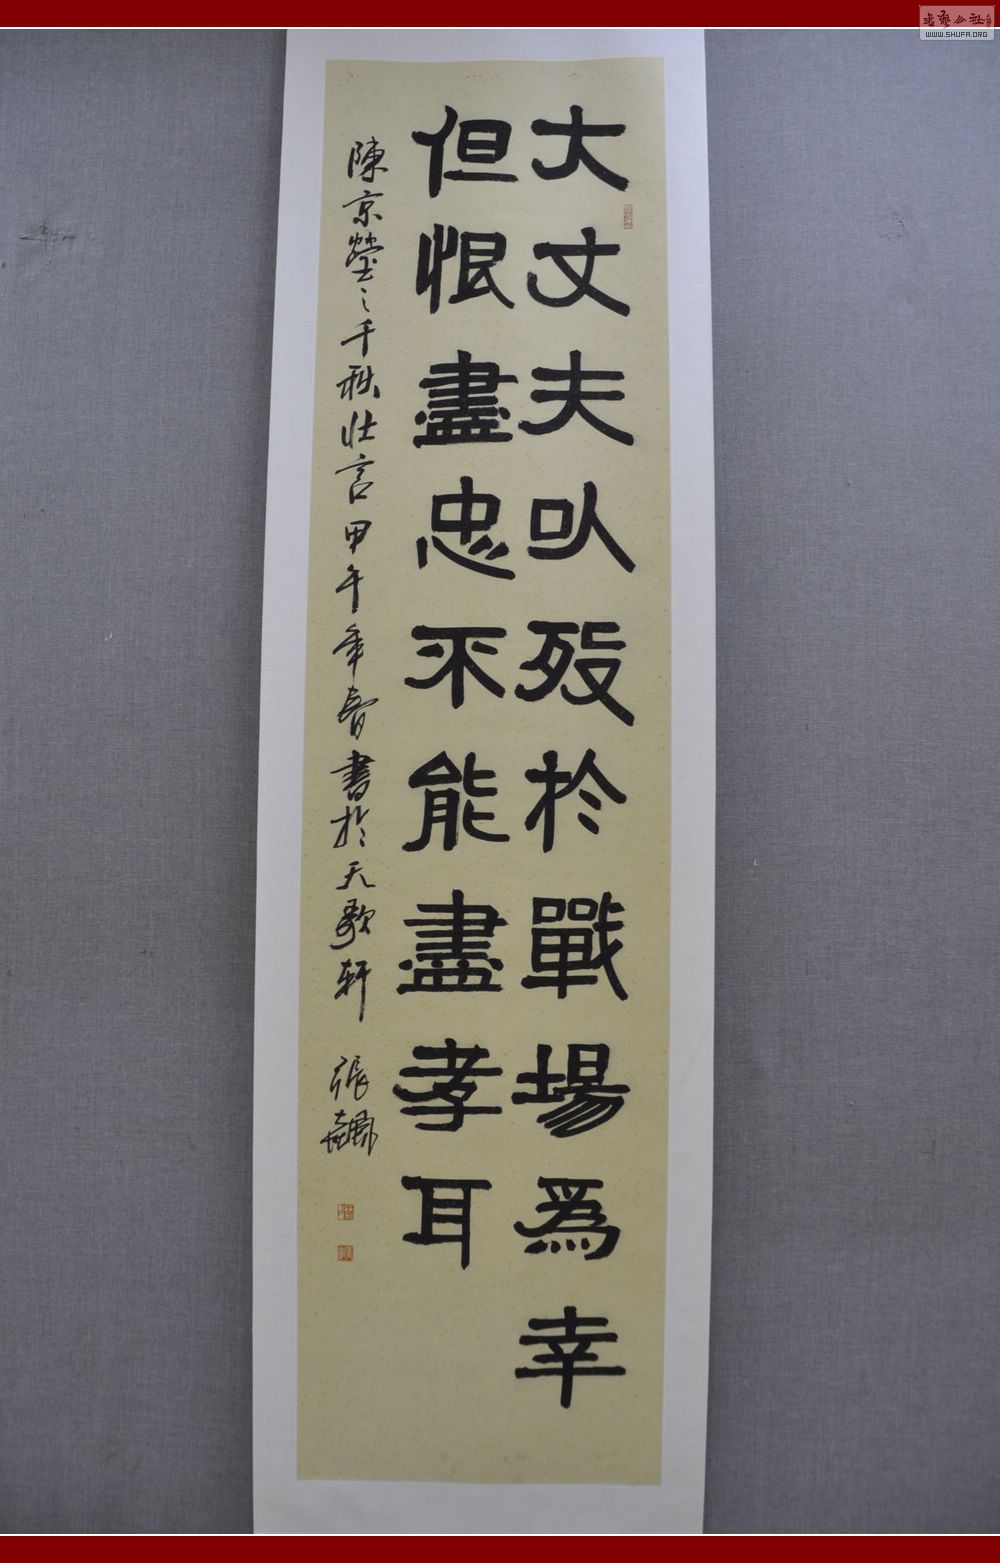 大丈夫以殁於戰場為幸
但恨盡忠不能盡孝耳
陳京瑩之千秋壯言甲午年春書於天歌軒 張飈
書藝公社
WWW.SHUFA.ORG